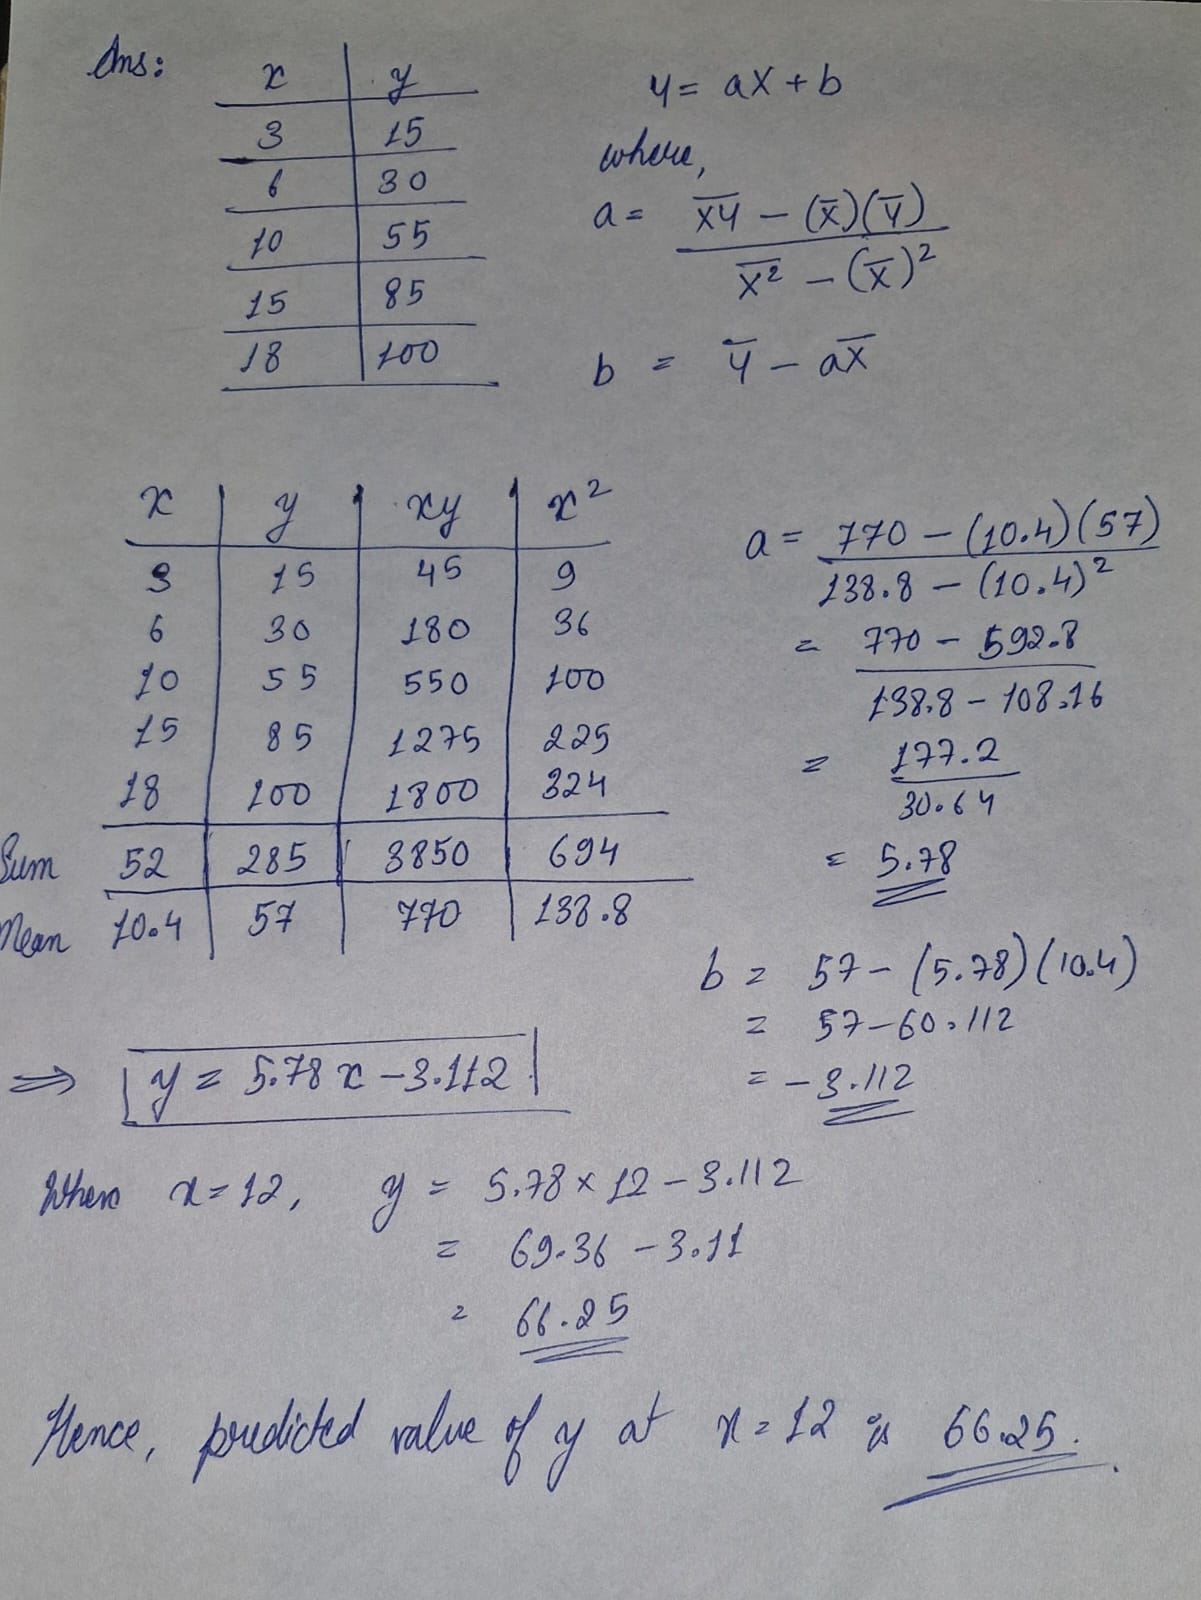 Ans:
x y
3 15
6 30
10 55
15 85
18 100
y = ax + b
where,
a = x̅y̅ - (x̅)(y̅)
x̅²̅ - (x̅)²
b = y̅ - ax̅
x y xy x²
3 15 45 9
6 30 180 36
10 55 550 100
15 85 1275 225
18 100 1800 324
Sum 52 285 3850 694
Mean 10.4 57 770 138.8
a = 770 - (10.4)(57)
138.8 - (10.4)²
= 770 - 592.8
138.8 - 108.16
= 177.2
30.64
= 5.78
b = 57 - (5.78)(10.4)
= 57 - 60.112
= -3.112
⇒ y = 5.78x - 3.112
When x = 12, y = 5.78 × 12 - 3.112
= 69.36 - 3.11
= 66.25
Hence, predicted value of y at x = 12 is 66.25.